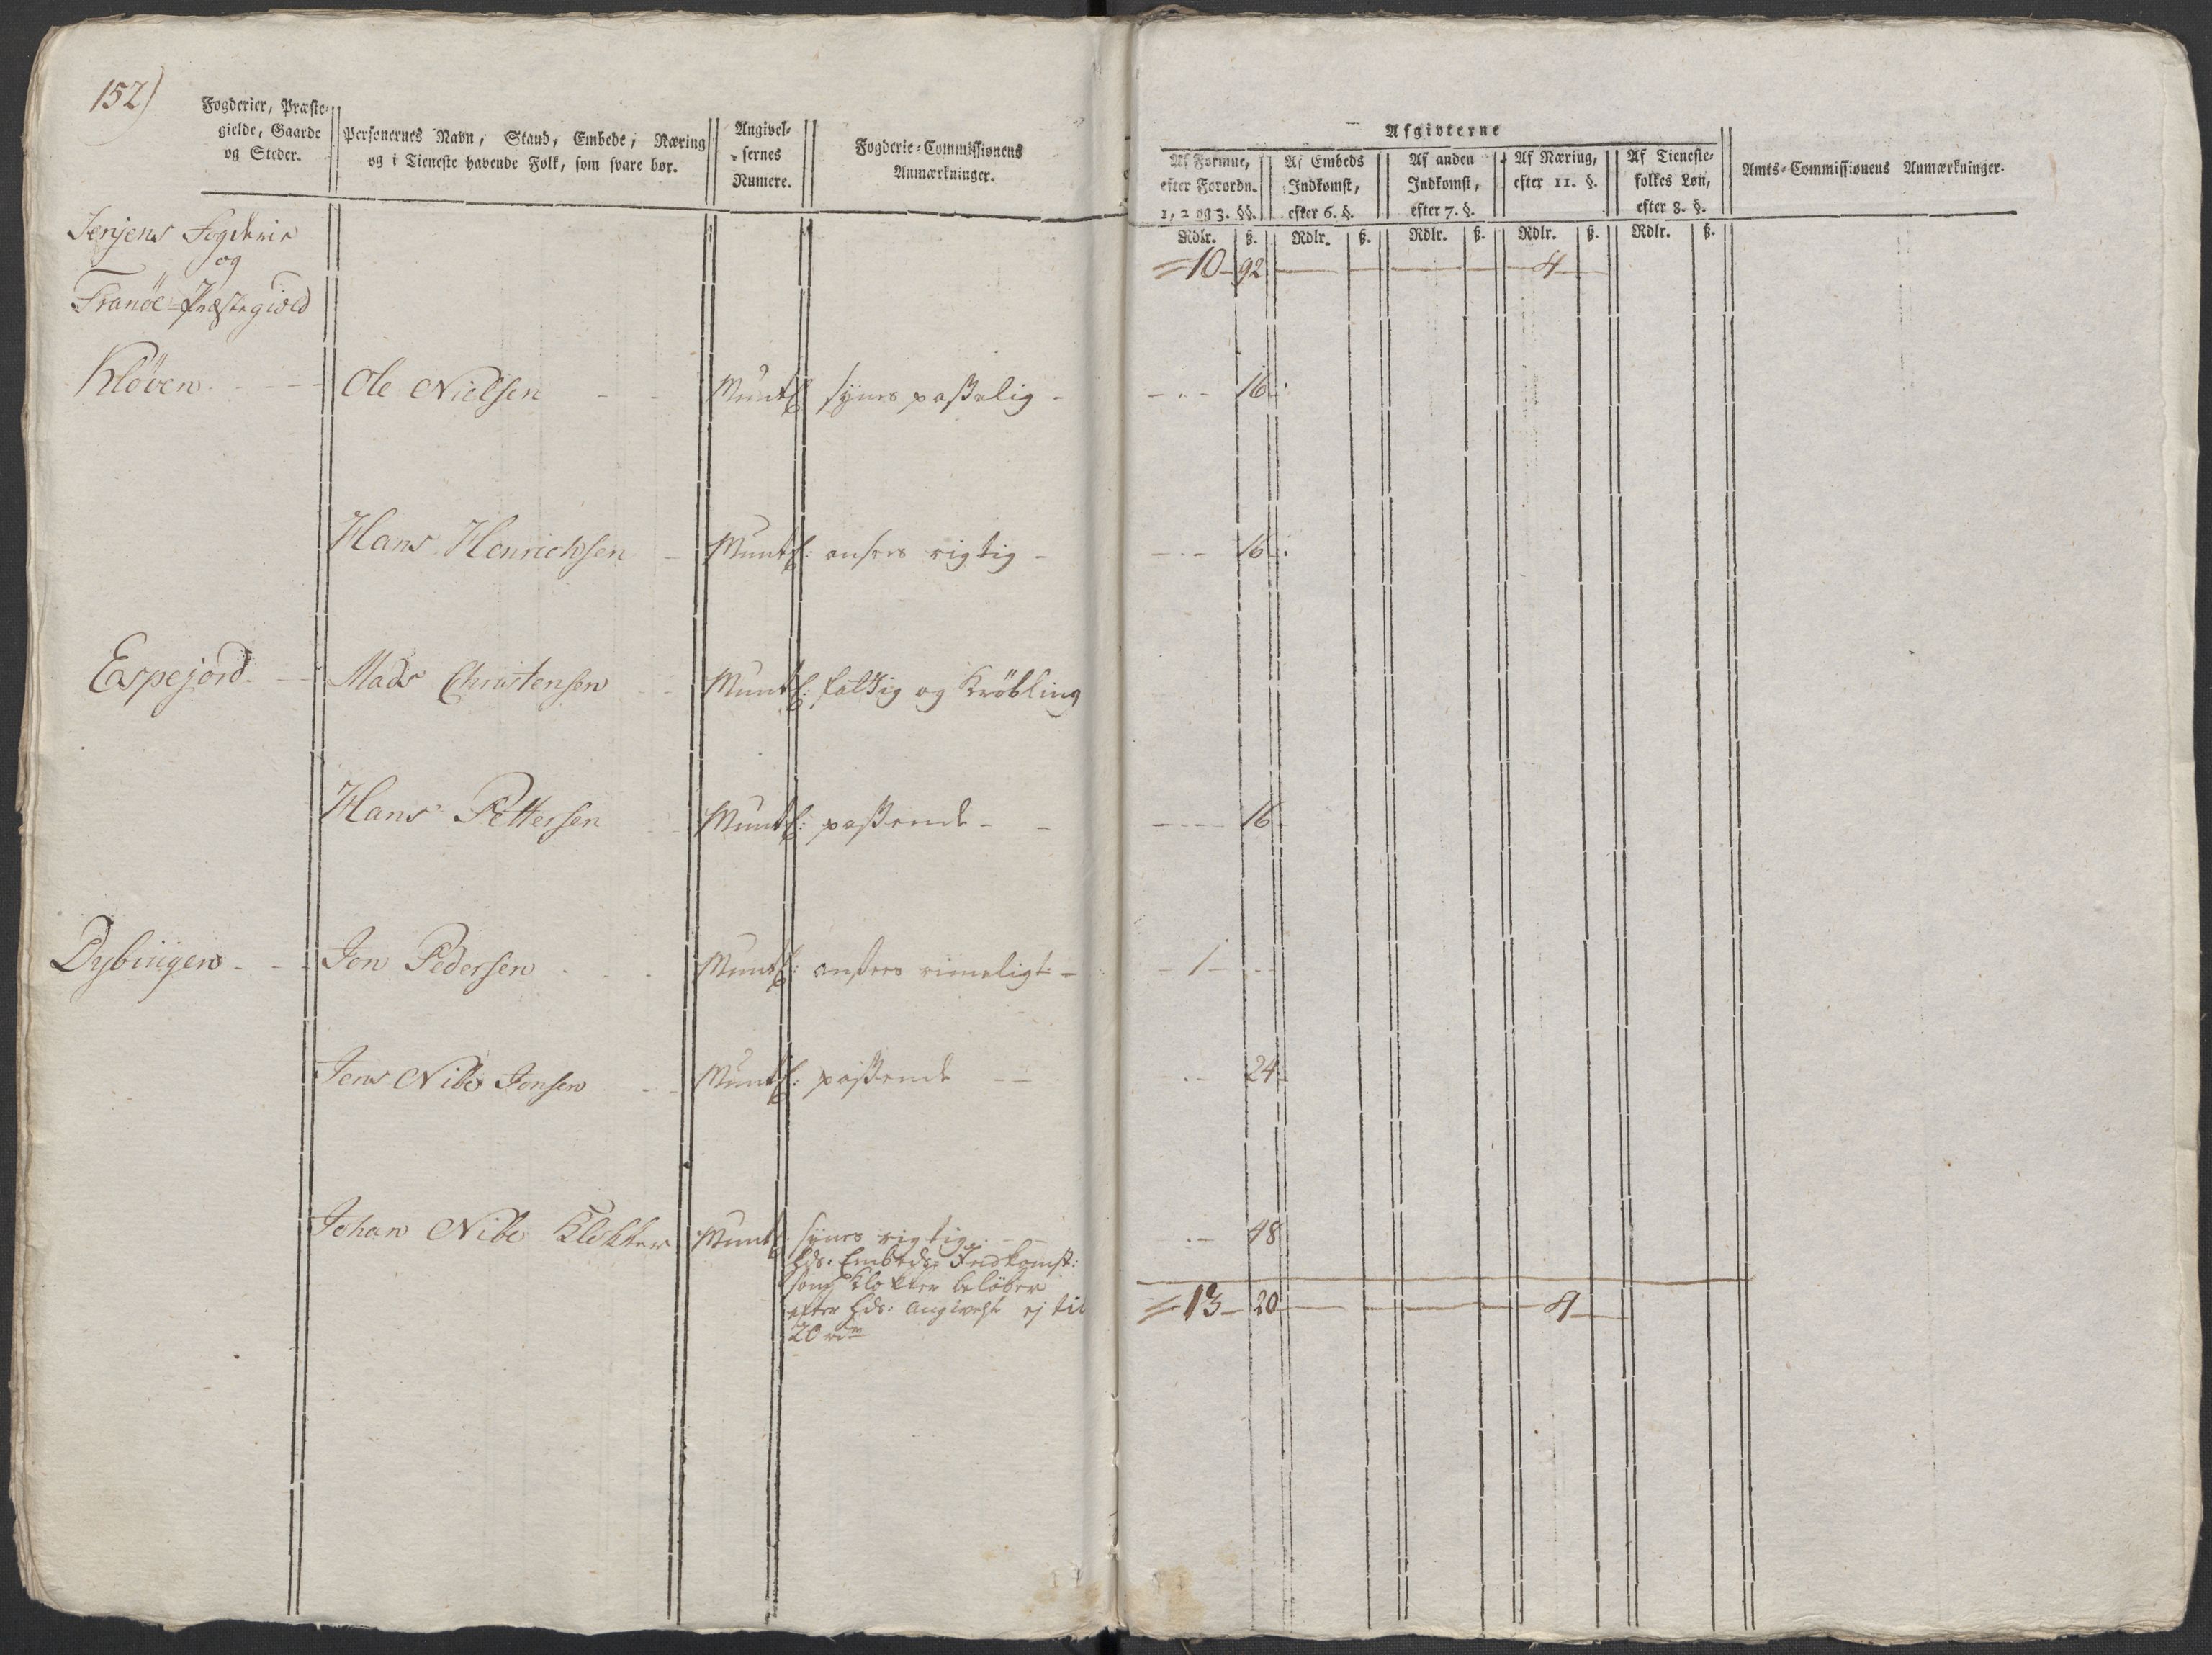 152)
Fogderier, Præste-
gielde, Gaarde
og Steder.
Personernes Navn, Stand, Embede, Næring
og i Tieneste havende Folk, som svare bør.
Angivel-
sernes
Numere.
Fogderie-Commissionens
Anmærkninger.
Afgivterne
Af Formue,
efter Forordn.
1, 2 og 3. §§.
Af Embeds
Indkomst,
efter 6. §.
Af anden
Indkomst,
efter 7. §.
Af Næring,
efter 11. §.
Af Tieneste-
folkes Løn,
efter 8. §.
Amts-Commissionens Anmærkninger.
Rdlr. ß. Rdlr. ß. Rdlr. ß. Rdlr. ß. Rdlr. ß.
Senjens Fogderie
og
Tranöe Præstegield
10 - 92 - 4
Klöven - Ole Nielsen - Muntl synes passelig - 16
Hans Henrichsen - Muntl: ansees rigtig - 16
Espejord - Mads Christensen - Muntl: fattig og Kröbling
Hans Pettersen Muntl: passende - 16
Dybingen - Jon Pedersen - Muntl: ansees rimeligt - 1
Jens Nibe Jensen - Muntl: passende - 24
Johan Nibe Klokker Muntl synes rigtig - 48
Hds: Embeds Indkomst:
som Klokker beløber
efter Hds: angivelse ej til
20 rd
13 - 20 - 4